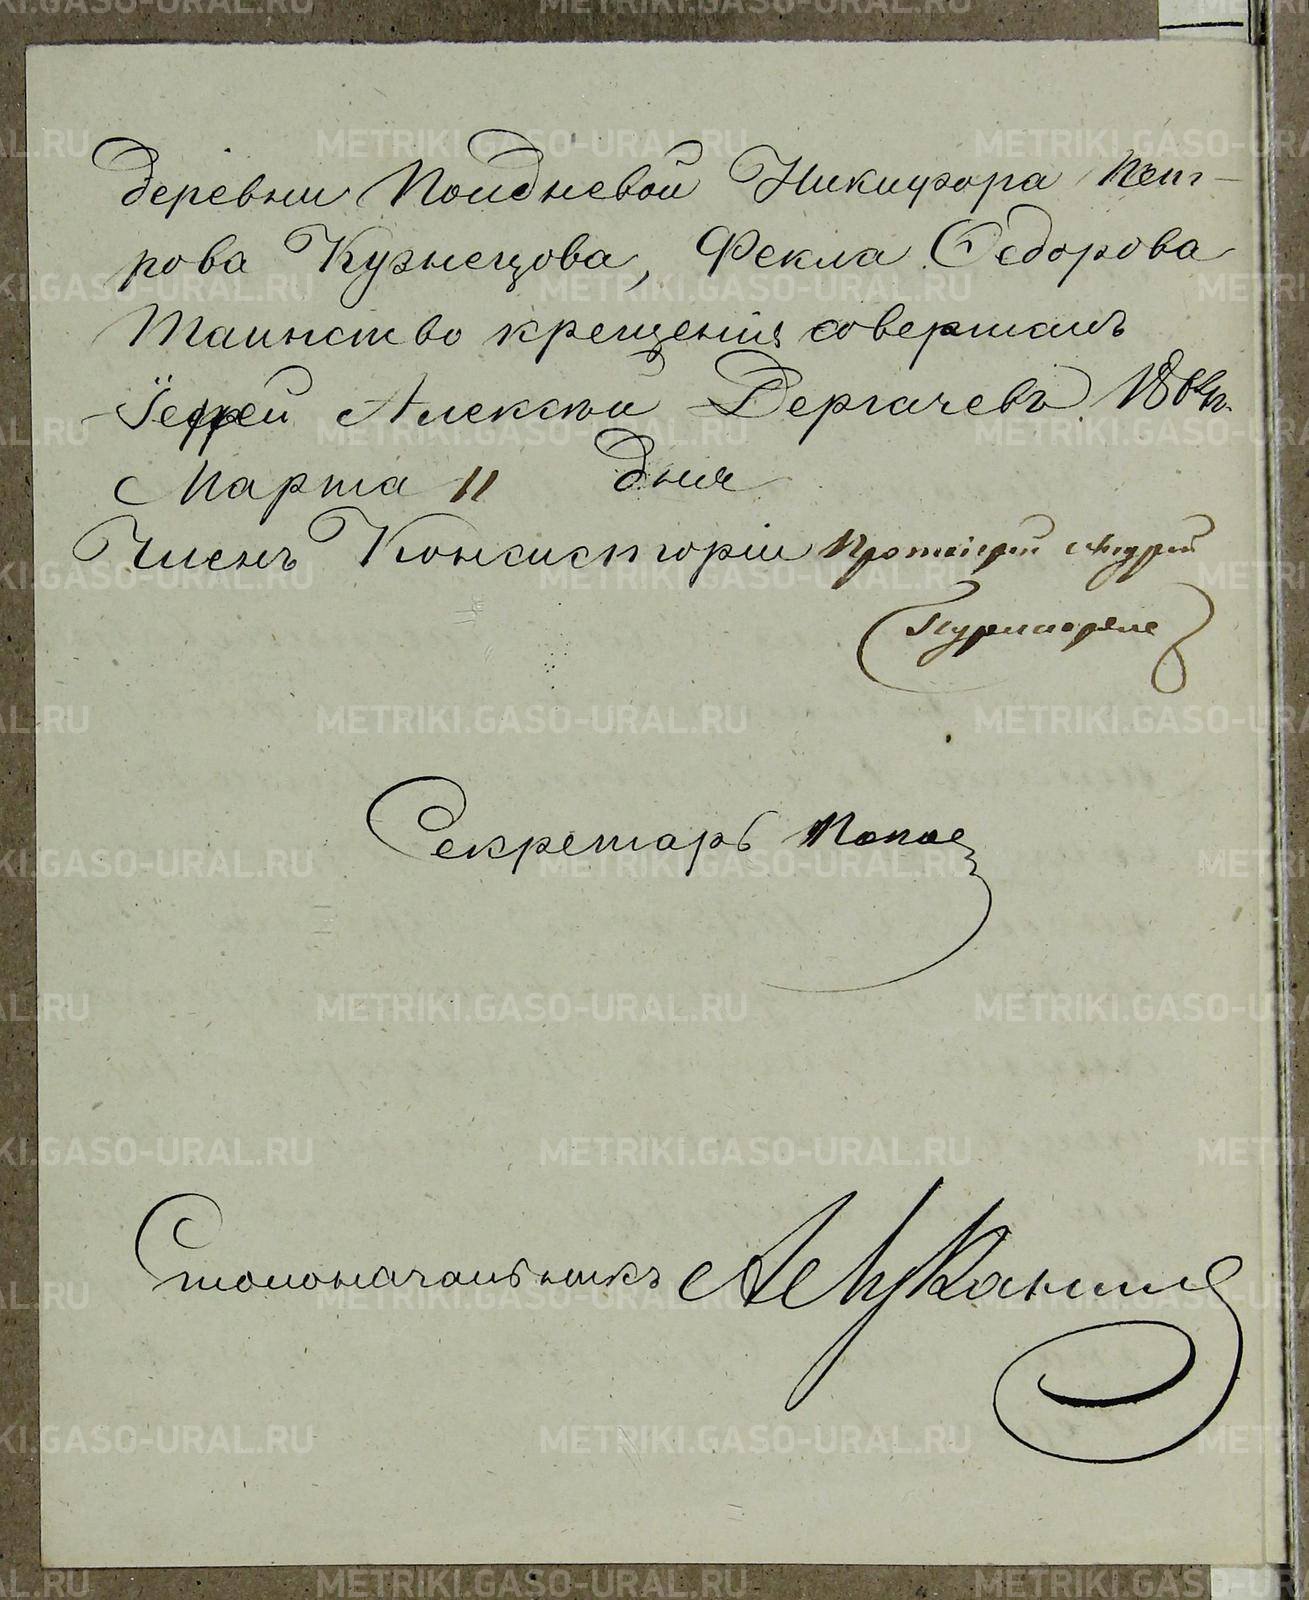 деревни Полдневой Никифора Пет-
рова Кузнецова, Фекла Ѳедорова
Таинство крещенія совершалъ
Іерей Алексѣй Дергачевъ. 186
Марта 11 дня
Членъ Консисторіи Протоіерей Андрей
Секретарь Попов
Столоначальникъ А Луканин
METRIKI.GASO-URAL.RU